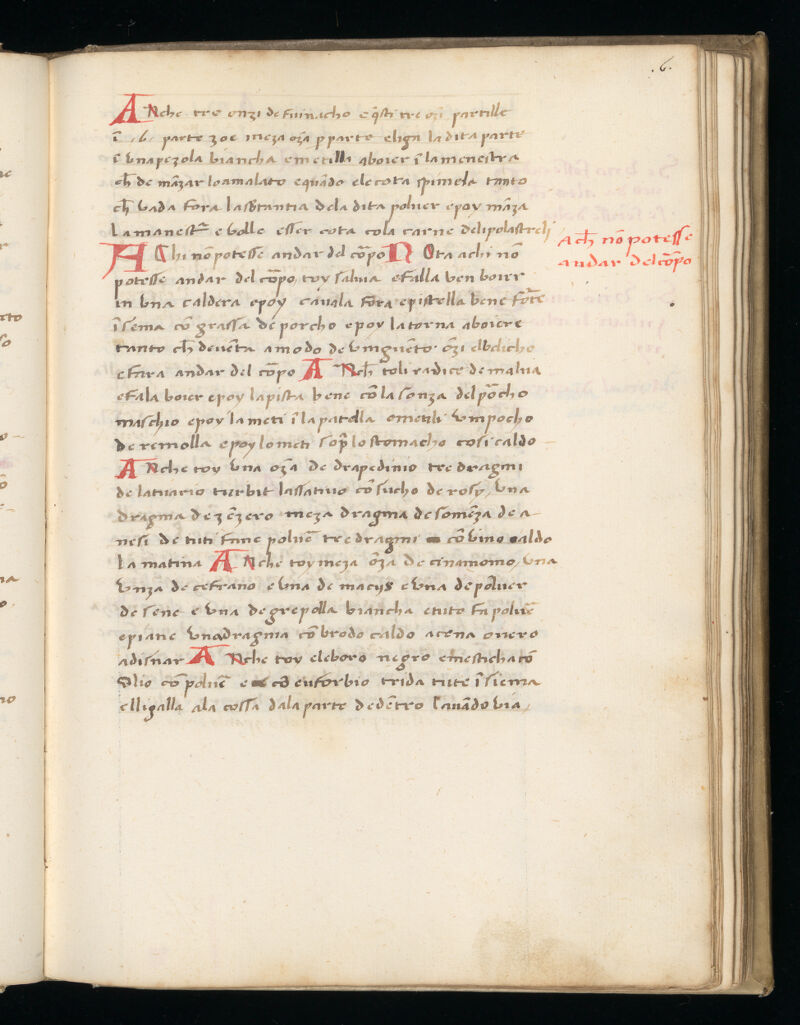 .6.
ANche tre onzi de fuinacho e q̃sti tre ozi partille
ĩ .6. parte zoe meza oza p parte e liga la dita parte
ĩ vna pezola biancha e metilla a boier ĩ la menestra
ch̃ de mãzar lo amalato e quãdo ele cota spimela tanto
ch̃ vada fora la sbstantia dela dita polver e poy mãza
la manestr̃ e volle esser cota cola carne deli polastreli
A Chi nõ potesse andar del cõpo NOta a chi nõ
potesse andar del cõpo, toy salvia e falla ben boier
in vna caldera e poy cavala fora e pistella bene forte
ĩsema cõ grassa de porcho e poy la torna a boiere
tanto ch̃ deventa a modo de vnguẽto
e fara andar del cõpo ANch̃ toli radice de malva
e fala boier e poy la pista bene cõ la sonza del porcho
maschio e poy la meti ĩ la patella e metili vn pocho
de remolla e poy lo meti sopra lo stomacho cosi caldo
ANche toy vna oza de drapedinio tre dragmi
de latuario turbit lassativo cõ sucho de rosy, vna
dragma de zẽzero meza dragma de somẽza de a-
nesi de tuti fãne polvẽ tre dragmi cõ vino caldo
la matina ANche toy meza oza de cinamomo, vna
vnza de cefrano e vna de macys e vna de polver
de sene e vna de grepolla biancha e tuto fa polvẽ
e piane vna dragma cõ brodo caldo a cena overo
a disnar ANche toy eleboro negro e mesticha cõ
Olio cõ polvẽ e co euforbio trida tute ĩsiema
e lligalla ala cossa dala parte de dẽtro lavãdo via,
Ach̃ nõ potesse
andar del cõpo